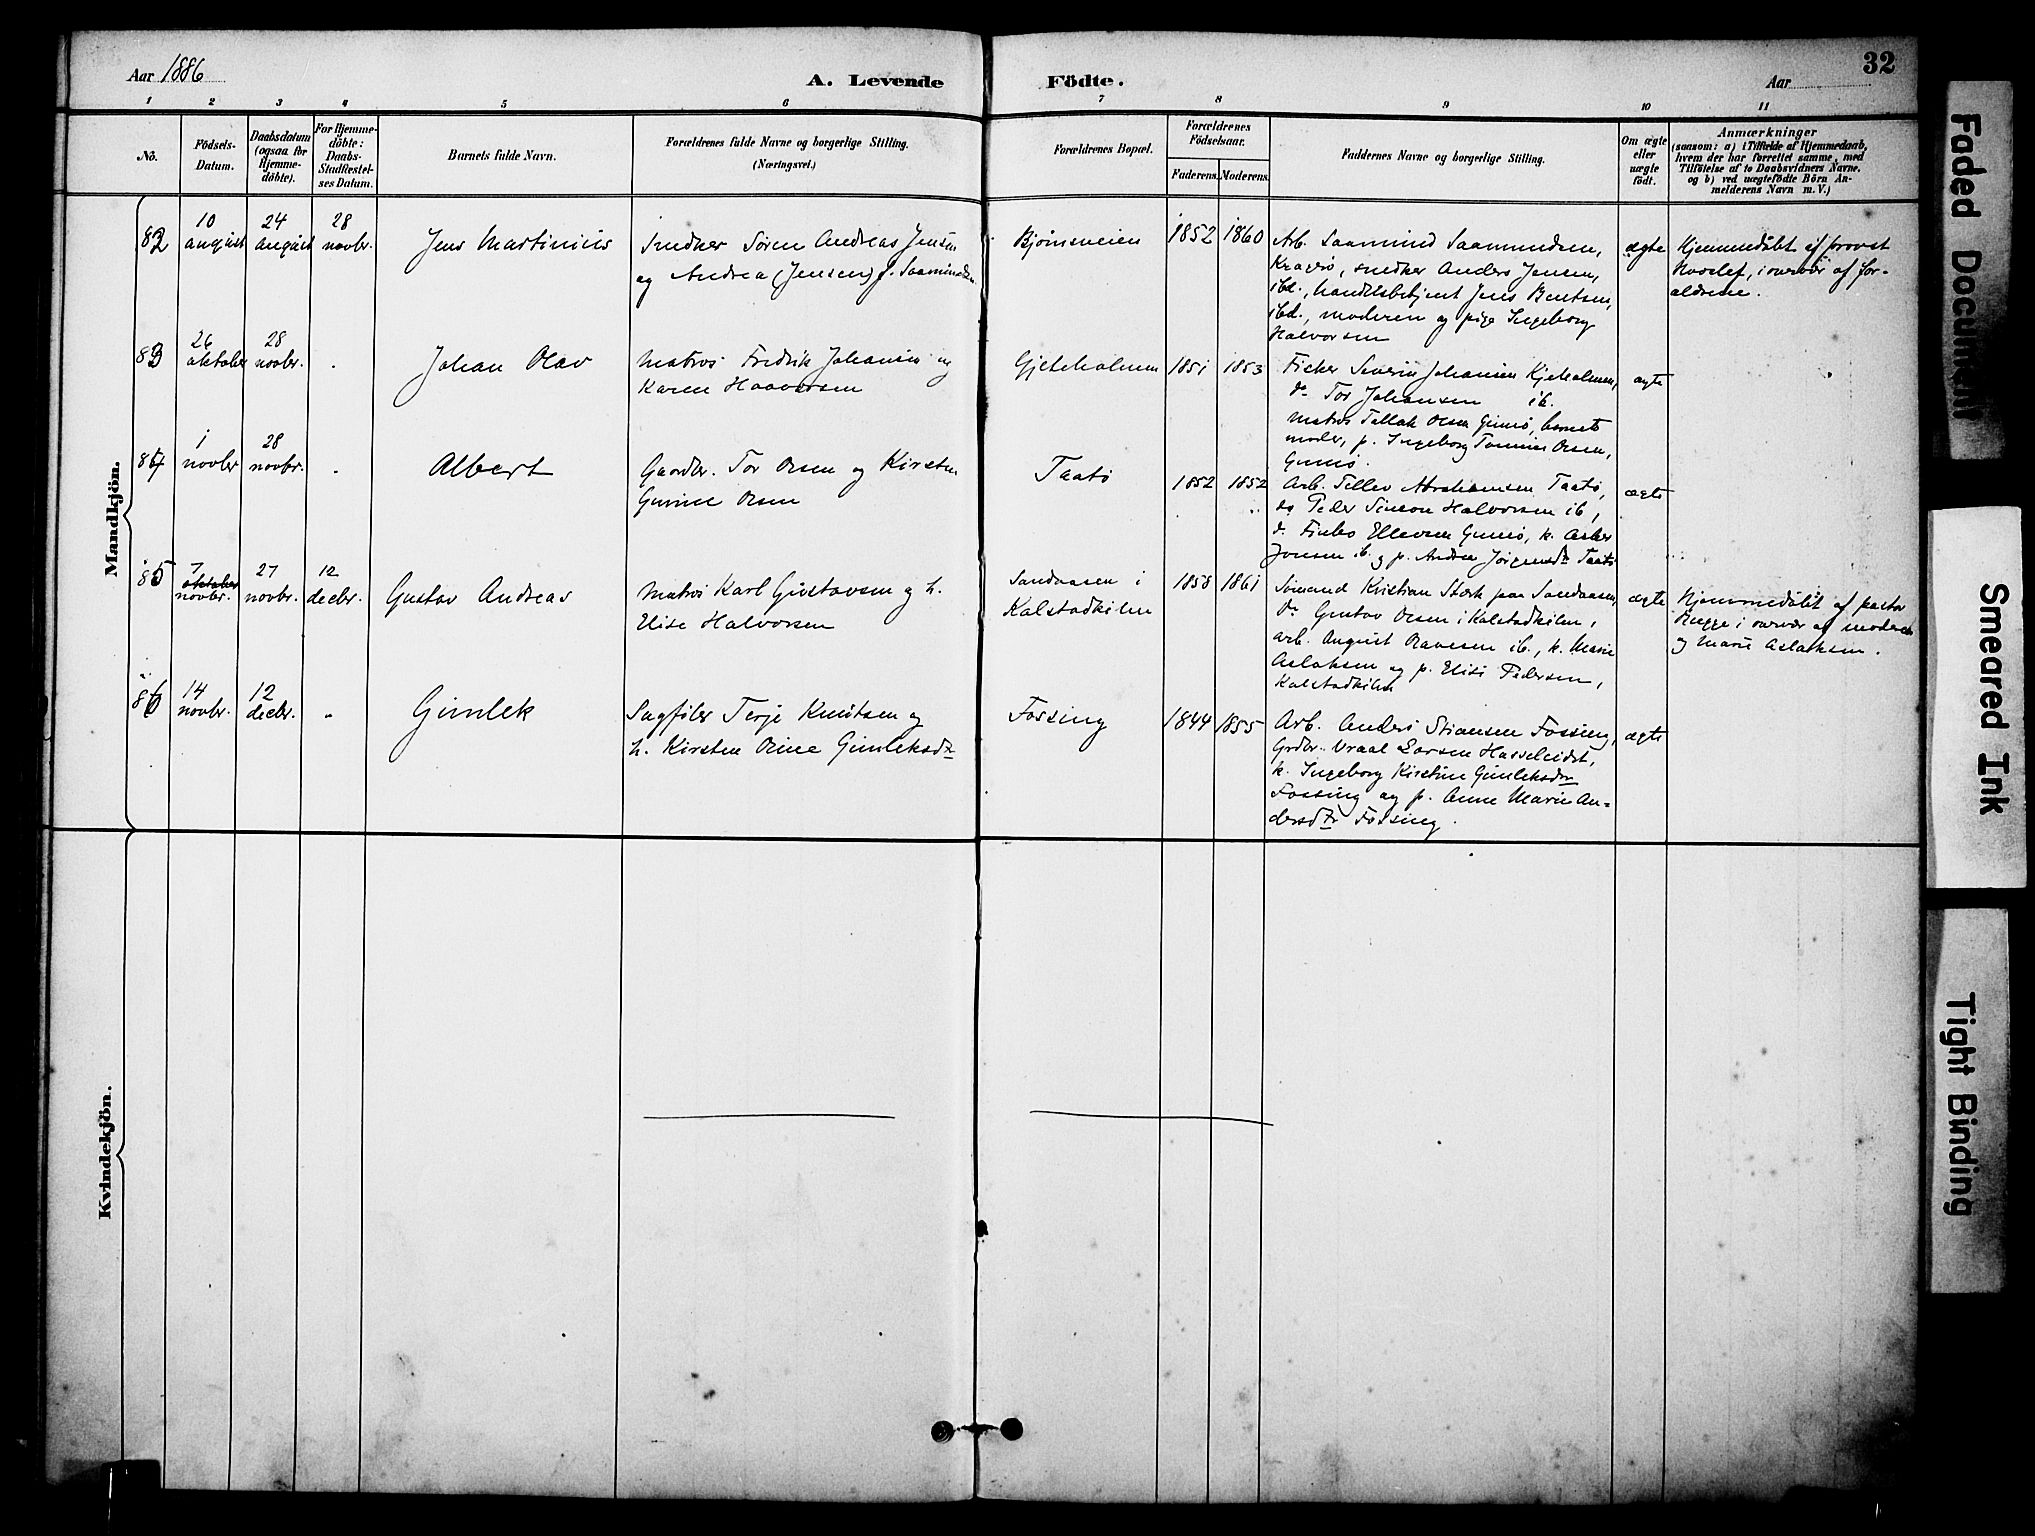 Aar 1886
A. Levende
Födte.
Aar
32
1 2 3 4 5 6 7 8 9 10 11
No.
Födsels-
Datum.
Daabsdatum
(ogsaa for
Hjemme-
döbte).
For Hjemme-
döbte:
Daabs-
Stadfæstel-
ses Datum.
Barnets fulde Navn.
Forældrenes fulde Navne og borgerlige Stilling.
(Næringsvei.)
Forældrenes Bopæl.
Forældrenes
Födselsaar.
Faderens. Moderens.
Faddernes Navne og borgerlige Stilling.
Om ægte
eller
uægte
födt.
Anmærkninger
(saasom: a) i Tilfælde af Hjemmedaab,
hvem der har forrettet samme, med
Tilföielse af to Daabsvidners Navne.
og b) ved uægtefödte Börn An-
melderens Navn m. V.)
Mandkjön.
82
10
august
24
august
28
novbr.
Jens Martinius
Snedker Sören Andreas Jensen
og Andrea (Jensen) f. Saamundsen
Bjönsveien
1852
1860
Arb. Saamund Saamundsen,
Kragerø, snedker Anders Jensen,
ibd., handelsbetjent Jens Bentsen,
ibd., moderen og pige Ingeborg
Halvorsen
ægte
Hjemmedöbt af provst
Hvoslef, i overvær af for-
ældrene.
83
26
oktober
28
novbr.
Johan Olav
Matros Fredrik Johansen og
Karen Haavorsen
Gjeteholmen
1851
1853
Fisker Severin Johansen Gjeteholmen,
do Tor Johansen ib.
Matros Tallak Olsen Gumö, barnets
moder, p. Ingeborg Tomine Olsen,
Gumö.
ægte
84
1
novbr
28
novbr.
Albert
Gaardbr. Tor Olsen og Kirsten
Gurine Olsen
Taatö
1852
1852
Arb. Tellev Abrahamsen Taatö,
do Peder Simeon Halvorsen ib,
d. Ellevsen Gumö, k.
Jonsen ib. og p. Andrea Jörgensdtr Taatö
ægte
85
7
oktober
novbr.
27
novbr.
12
decbr.
Gustav Andreas
Matros Karl Gustavsen og h.
Elise Halvorsen
Sandaasen i
Kalstadkilen
1858
1861
Sömand Kristian Stærk paa Sandaasen,
do Gustav Olsen i Kalstadkilen,
arb. August Ravnsen ib., k. Marie
Aslaksen og p. Elise Pedersen,
Kalstadkilen
ægte
Hjemmedöbt af pastor
Rugge i overvær af moderen
og Marie Aslaksen.
86
14
novbr.
12
decbr.
Gunlek
Sagfiler Terje Knutsen og
h. Kirsten Oline Gunleksdtr
Fossing
1844
1855
Arb. Anders Stiansen Fossing,
Grdbr. Vraal Larsen Hasseleidet,
k. Ingeborg Kirstine Gunleksdtr
Fossing og p. Anne Marie An-
dersdtr Fossing.
ægte
Kvindekjön.
Faded Document
Smeared Ink
Tight Binding